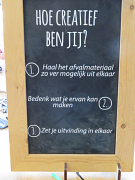 HOE CREATIEF
BEN JIJ?
1 Haal het afvalmateriaal
zo ver mogelijk uit elkaar
Bedenk wat je ervan kan 2
maken
3 Zet je uitvinding in elkaar